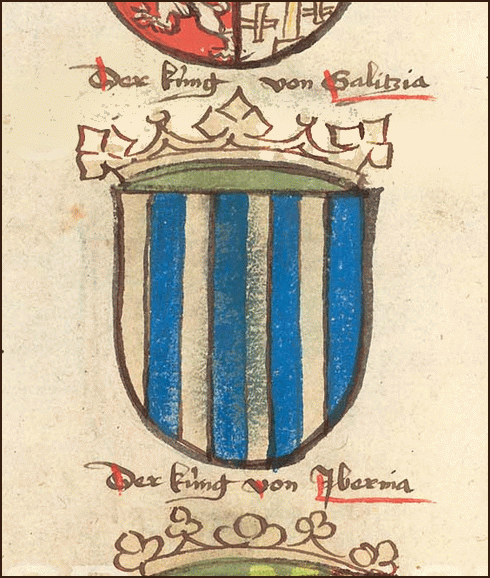 Der küng von Galitzia
Der küng von Ibernia